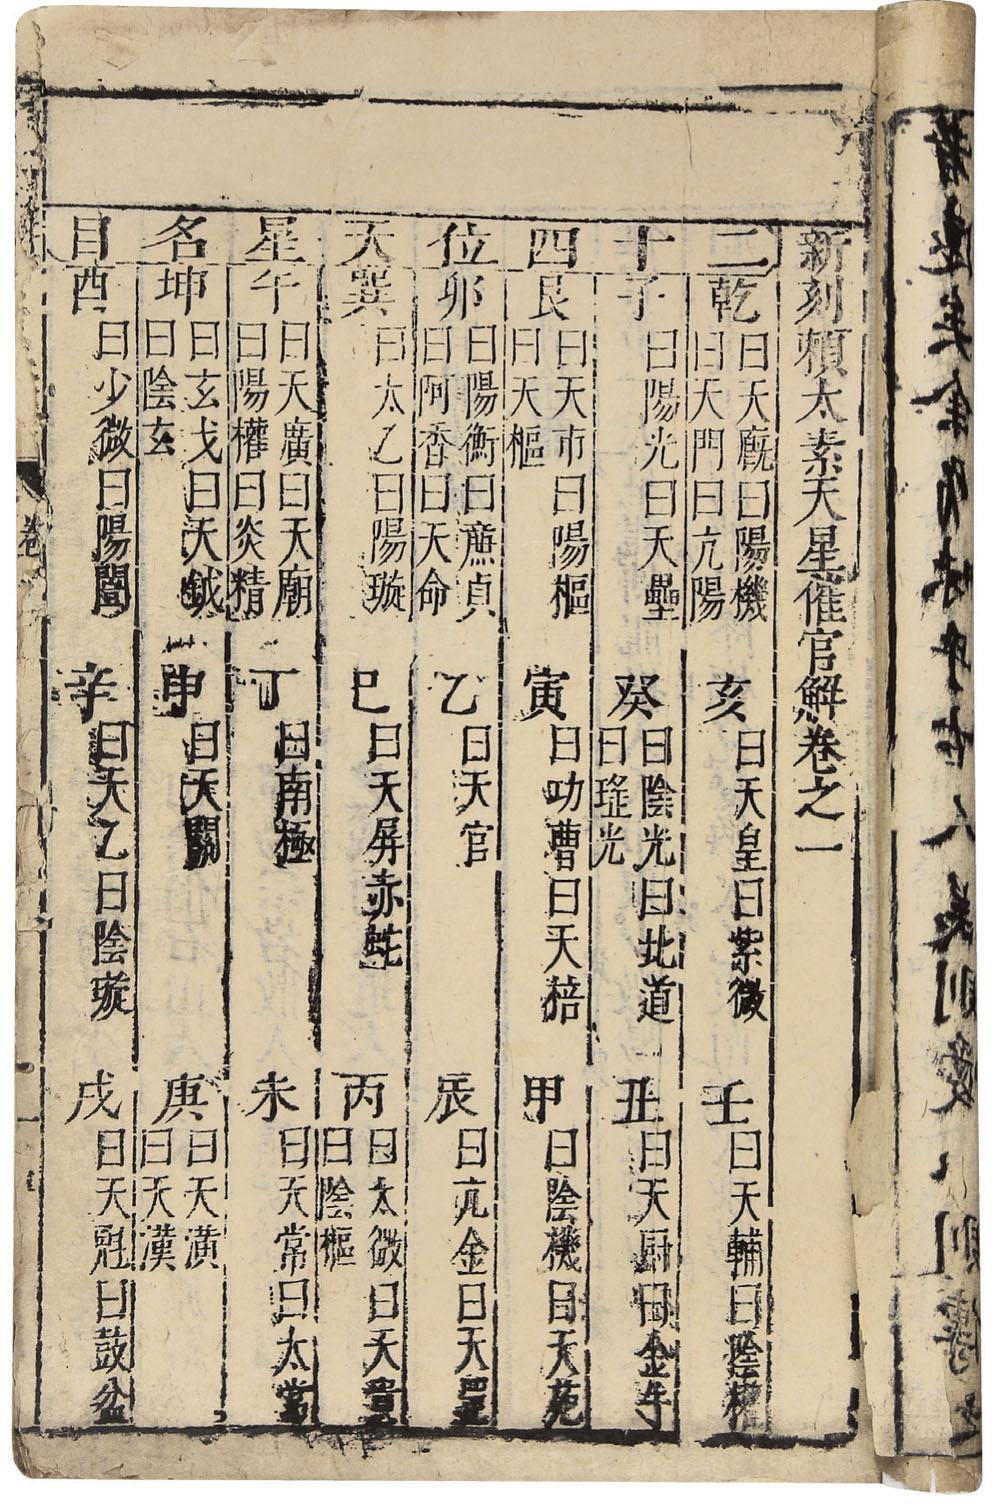 新刻賴太素天星催官觧卷之一
二十四位天星名目
乾 曰天廐曰陽機曰天門曰亢陽
亥 曰天皇曰紫微
壬 曰天輔曰陰權
子 曰陽光曰天壘
癸 曰陰光曰北道曰瑶光
丑 曰天厨曰金牛
艮 曰天市曰陽樞曰天樞
寅 曰功曹曰天棓
甲 曰陰機曰天苑
卯 曰陽衡曰亷貞曰阿香曰天命
乙 曰天官
辰 曰亢金曰天罡
巽 曰太乙曰陽璇
巳 曰天屏赤蛇
丙 曰太微曰天貴曰陰樞
午 曰天廣曰天廟曰陽權曰炎精
丁 曰南極
未 曰天常曰太常
坤 曰玄戈曰天鉞曰陰玄
申 曰天關
庚 曰天潢曰天漢
酉 曰少微曰陽闓
辛 曰天乙曰陰璇
戌 曰天魁曰鼓盆
卷
一